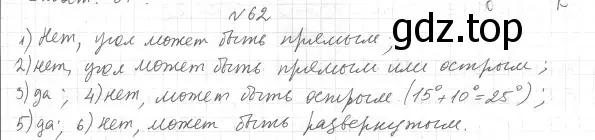 №62
1) Нет, угол может быть прямым;
2) нет, угол может быть прямым или острым;
3) да; 4) нет, может быть острым (15°+10°=25°);
5) да; 6) нет, может быть развернутым.
gdz.top